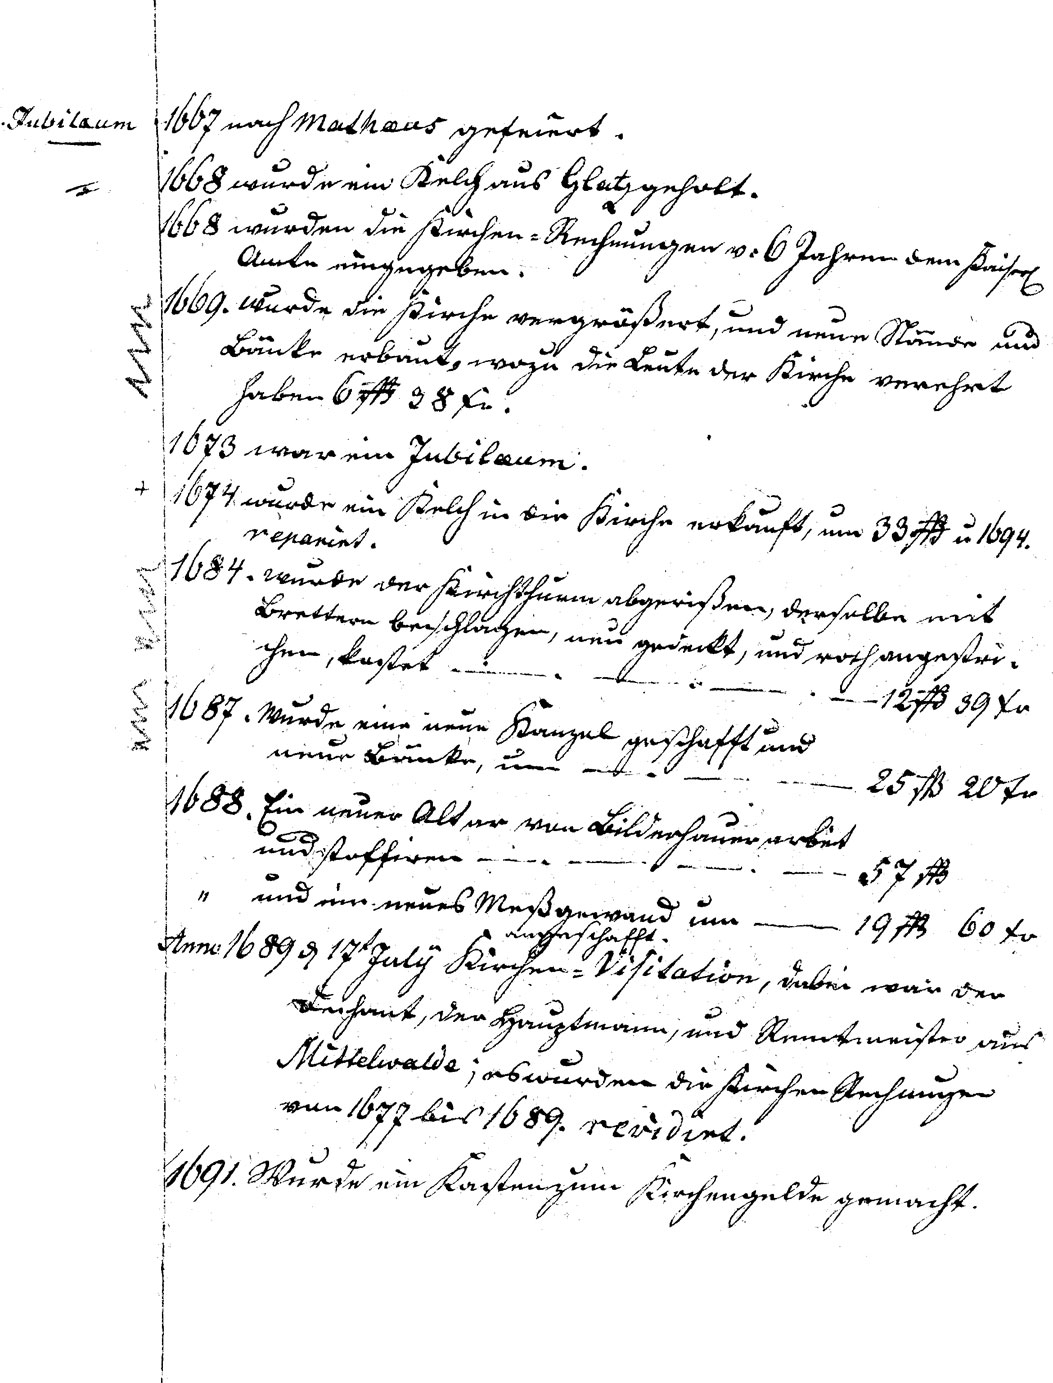 Jubilæum 1667 nach Mathæus gefeiert.
1668 wurde ein Kelch aus Glatz geholt.
1668 wurden die Kirchen=Rechnungen v. 6 Jahren dem Kaiserl
Amte eingegeben.
1669. wurde die Kirche vergrößert, und neue Stände und
Bänke erbaut, wozu die Leute der Kirche verehrt
haben 6 fß 38 kr.
1673 war ein Jubilæum.
+ 1674 wurde ein Kelch in die Kirche erkauft, um 33 fß u 1694.
reparirt.
1684. wurde der Kirchthurm abgerißen, derselbe mit
Brettern beschlagen, neu gedeckt, und roth angestri-
chen, kostet 12 fß 39 kr
1687. Wurde eine neue Kanzel geschafft und
neue Bänke, um 25 fß 20 kr
1688. Ein neuer Altar von Bilderhauer arbeit
und stoffiren 57 fß
" und ein neues Meßgewand um 19 fß 60 kr
angeschafft.
Anno 1689 d 17t July Kirchen=Visitation, dabei war der
Dechant, der Hauptmann, und Rentmeister aus
Mittelwalde; es wurden die Kirchen Rechnungen
von 1677 bis 1689. revidirt.
1691. Wurde ein Kasten zum Kirchengelde gemacht.